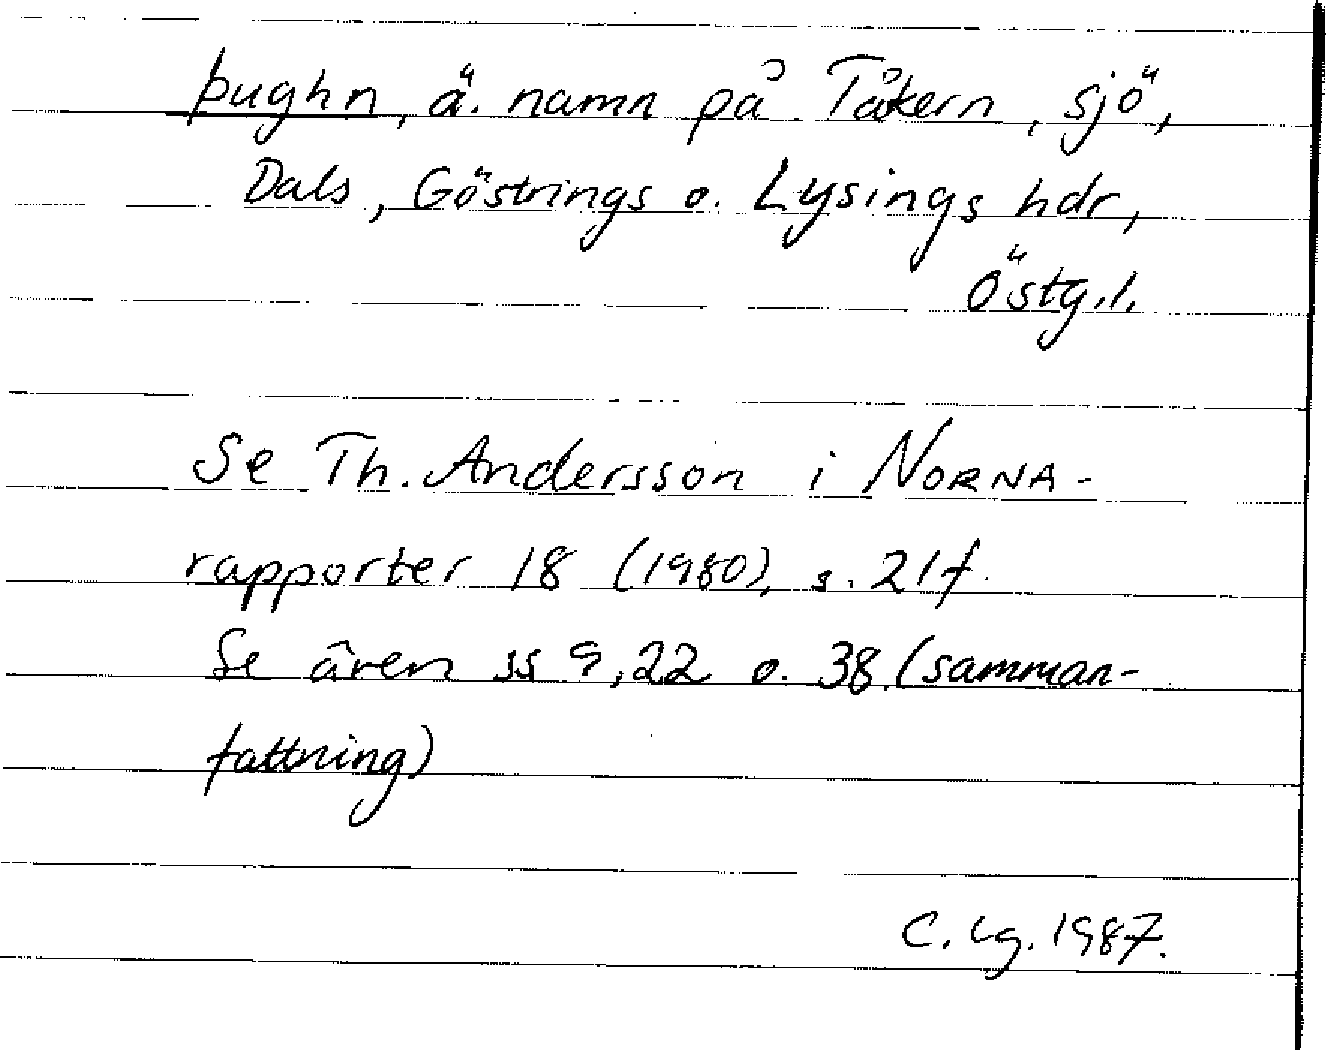 þughn, ä. namn på Tåkern, sjö,
Dals, Göstrings o. Lysings hdr,
Östg.l.
Se Th. Andersson i NORNA-
rapporter 18 (1980), s. 21f.
Se även ss 9, 22 o. 38 (samman-
fattning)
C. Lg. 1987.